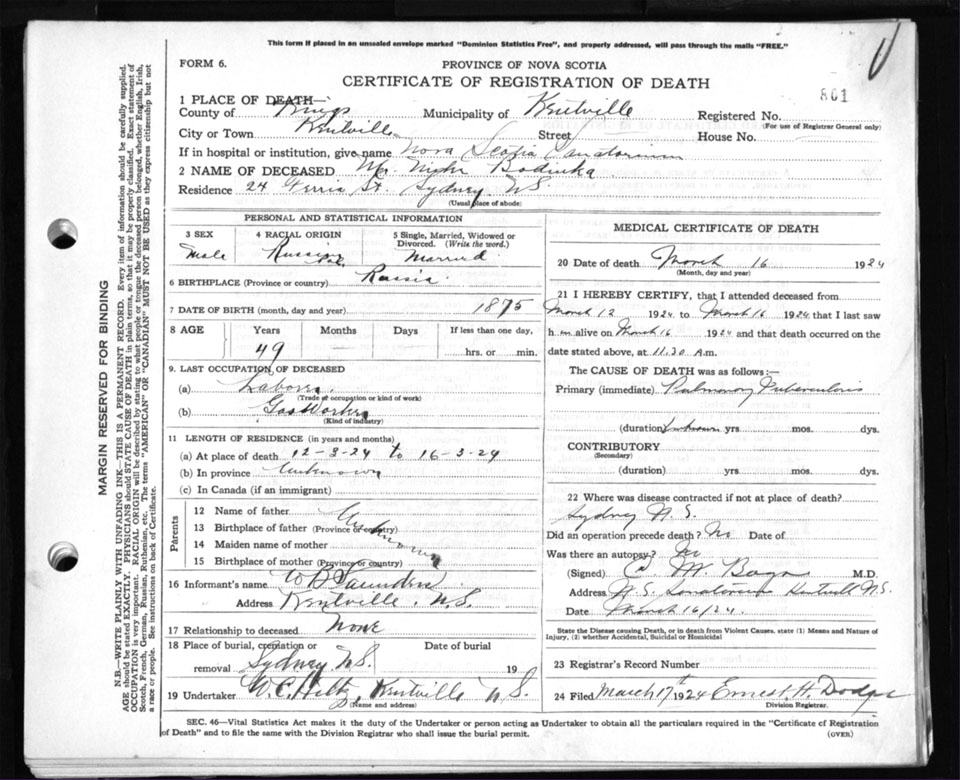 This form if placed in an unsealed envelope marked "Dominion Statistics Free", and properly addressed, will pass through the mails "FREE."
FORM 6.
PROVINCE OF NOVA SCOTIA
CERTIFICATE OF REGISTRATION OF DEATH
801
1 PLACE OF DEATH—
County of Kings Municipality of Kentville Registered No.
(For use of Registrar General only)
City or Town Kentville Street House No.
If in hospital or institution, give name Nova Scotia Sanatorium
2 NAME OF DECEASED Mr. Bodinka
Residence 24 Ferris St. Sydney N.S.
(Usual place of abode)
PERSONAL AND STATISTICAL INFORMATION
3 SEX
Male
4 RACIAL ORIGIN
Russian
5 Single, Married, Widowed or Divorced. (Write the word.)
Married
6 BIRTHPLACE (Province or country) Russia
7 DATE OF BIRTH (month, day and year) 1875
8 AGE Years Months Days If less than one day,
49 hrs. or min.
9. LAST OCCUPATION OF DECEASED
(a) Laborer
(Trade or occupation or kind of work)
(b) Gas Works
(Kind of industry)
11 LENGTH OF RESIDENCE (in years and months)
(a) At place of death 12-3-24 to 16-3-24
(b) In province Unknown
(c) In Canada (if an immigrant)
Parents
12 Name of father
13 Birthplace of father (Province or country)
Unknown
14 Maiden name of mother
15 Birthplace of mother (Province or country)
16 Informant's name W B Saunders
Address Kentville, N.S.
17 Relationship to deceased None
18 Place of burial, cremation or removal Sydney N.S. Date of burial 19
19 Undertaker W. C. Hiltz, Kentville N.S.
(Name and address)
MEDICAL CERTIFICATE OF DEATH
20 Date of death March 16 1924
(Month, day and year)
21 I HEREBY CERTIFY, that I attended deceased from
March 12 1924 to March 16 1924 that I last saw
him alive on March 16 1924 and that death occurred on the
date stated above, at 11.30 A.m.
The CAUSE OF DEATH was as follows:—
Primary (immediate) Pulmonary Tuberculosis
(duration) Unknown yrs. mos. dys.
CONTRIBUTORY
(Secondary)
(duration) yrs. mos. dys.
22 Where was disease contracted if not at place of death?
Sydney N.S.
Did an operation precede death? No Date of
Was there an autopsy? No
(Signed) M. M.D.
Address N.S. Sanatorium Kentville N.S.
Date March 16/24.
State the Disease causing Death, or in death from Violent Causes, state (1) Means and Nature of Injury, (2) whether Accidental, Suicidal or Homicidal
23 Registrar's Record Number
24 Filed March 17th 1924 Ernest H. Dodge
Division Registrar.
SEC. 46—Vital Statistics Act makes it the duty of the Undertaker or person acting as Undertaker to obtain all the particulars required in the "Certificate of Registration
of Death" and to file the same with the Division Registrar who shall issue the burial permit.
(OVER)
MARGIN RESERVED FOR BINDING
N.B.—WRITE PLAINLY WITH UNFADING INK—THIS IS A PERMANENT RECORD. Every item of information should be carefully supplied.
AGE should be stated EXACTLY. PHYSICIANS should STATE CAUSE OF DEATH in plain terms, so that it may be properly classified. Exact statement of
OCCUPATION is very important. RACIAL ORIGIN will be described by stating to what people or tongue the deceased person belonged, whether English, Irish,
Scotch, French, German, Russian, Ruthenian, etc. The terms "AMERICAN" OR "CANADIAN" MUST NOT BE USED as they express citizenship but not
a race or people. See instructions on back of Certificate.